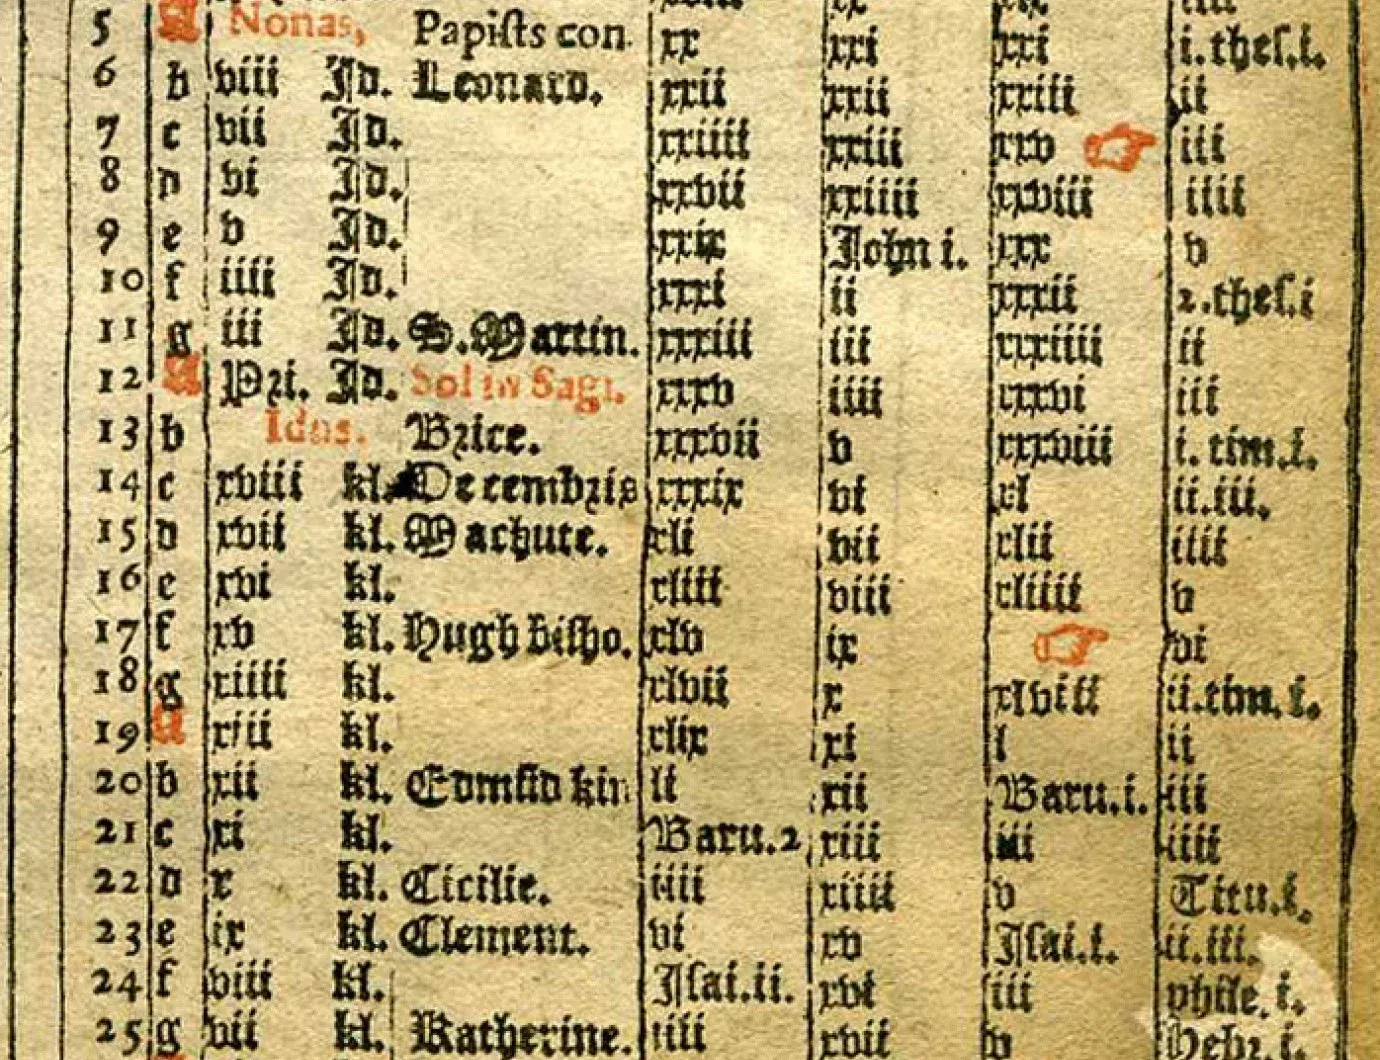 5 A Nonas, Papists con. xx xxi xxi i.thes.i.
6 b viii Id. Leonard. xxii xxii xxiii ii
7 c vii Id. xxiiii xxiii xxv ☞ iii
8 d vi Id. xxvii xxiiii xxviii iiii
9 e v Id. xxix John i. xxx v
10 f iiii Id. xxxi ii xxxii 2.thes.i
11 g iii Id. S.Martin. xxxiii iii xxxiiii ii
12 A Pri. Id. Sol in Sagi. xxxv iiii xxxvi iii
13 b Idus. Brice. xxxvii v xxxviii i. tim.i.
14 c xviii kl. Decembris xxxix vi xl ii.iii.
15 d xvii kl. Machute. xli vii xlii iiii
16 e xvi kl. xliii viii xliiii v
17 f xv kl. Hugh bisho. xlv ix ☞ vi
18 g xiiii kl. xlvii x xlviii ii.tim. i.
19 A xiii kl. xlix xi l ii
20 b xii kl. Edmūd kin li xii Baru.i. iii
21 c xi kl. Baru.2 xiii iii iiii
22 d x kl. Cicilie. iiii xiiii v Titu.i.
23 e ix kl. Clement. vi xv Isai.i. ii.iii.
24 f viii kl. Isai.ii. xvi iii phile. i.
25 g vii kl. Katherine. iiii xvii v Hebr.i.